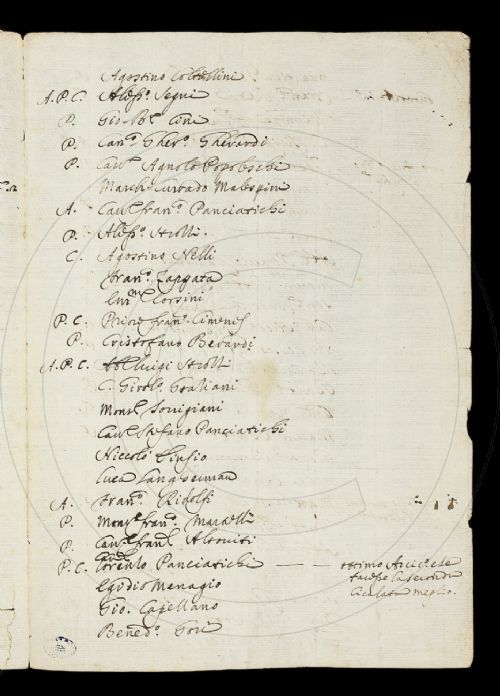 Agostino Coltellini
A. P. C. Aless.º Segni
P. Gio: Coni
P. Can.º Gher.º Gherardi
P. Cav. Agnolo Popoleschi
March. Currado Malespini
A. Cav. Fran.º Panciatichi
P. Aless.º Strozzi.
C. Agostino Nelli
Fran.º Zappata
Corsini
P. C. Priore Fran.º Cimenes
P. Cristofano Berardi
A. P. C. Luigi Strozzi
C. Girol.º Graziani
Mons. Sorrigiani
Cav. Stefano Panciatichi
Niccolò Einsio
Luca
A. Fran.º Ridolfi
P. Mons. Fran.º Mannelli
P. Cav. Fran. Altoviti
P. C. Lorenzo Panciatichi —— ottimo Arciere
la seconda
meglio.
Egidio Menagio
Gio. Capellano
Bened.º Gori